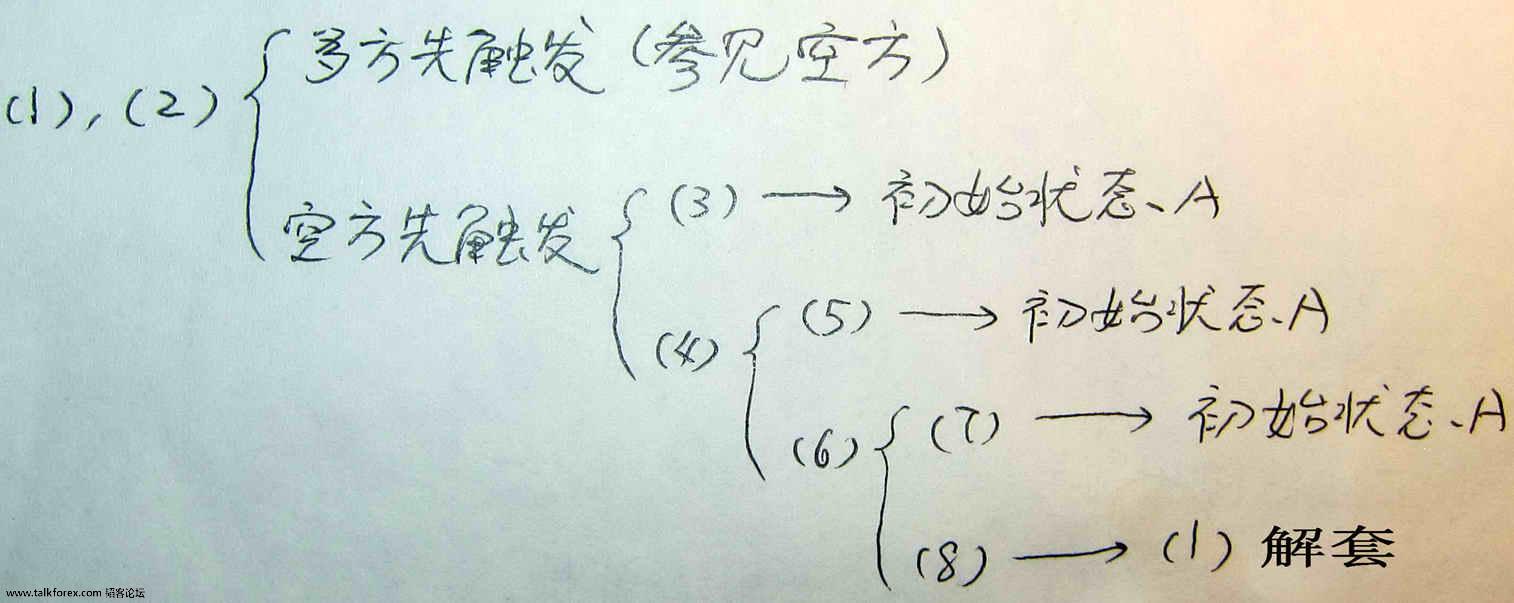 多方先触发(参见空方)
(1),(2)
(3) → 初始状态、A
空方先触发
(5) → 初始状态、A
(4)
(7) → 初始状态、A
(6)
(8) → (1) 解套
www.talkforex.com 韬客论坛